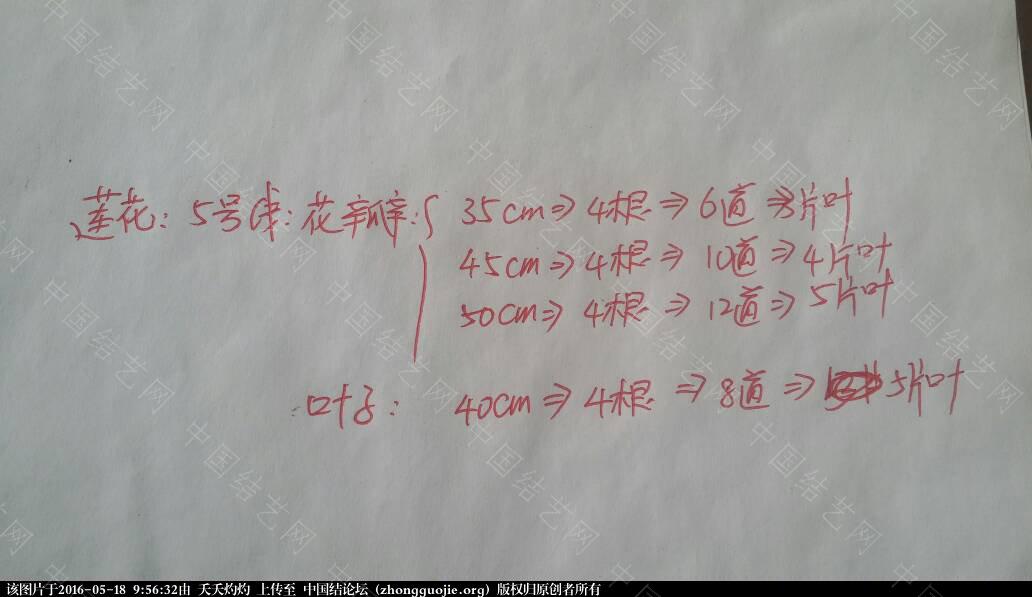 莲花：5号线：花瓣：{ 35cm⇒4根⇒6道⇒3片叶
45cm⇒4根⇒10道⇒4片叶
50cm⇒4根⇒12道⇒5片叶
叶子：40cm⇒4根⇒8道⇒5片叶
中国结艺网
该图片于2016-05-18 9:56:32由 天天灼灼 上传至 中国结论坛 (zhongguojie.org) 版权归原创者所有